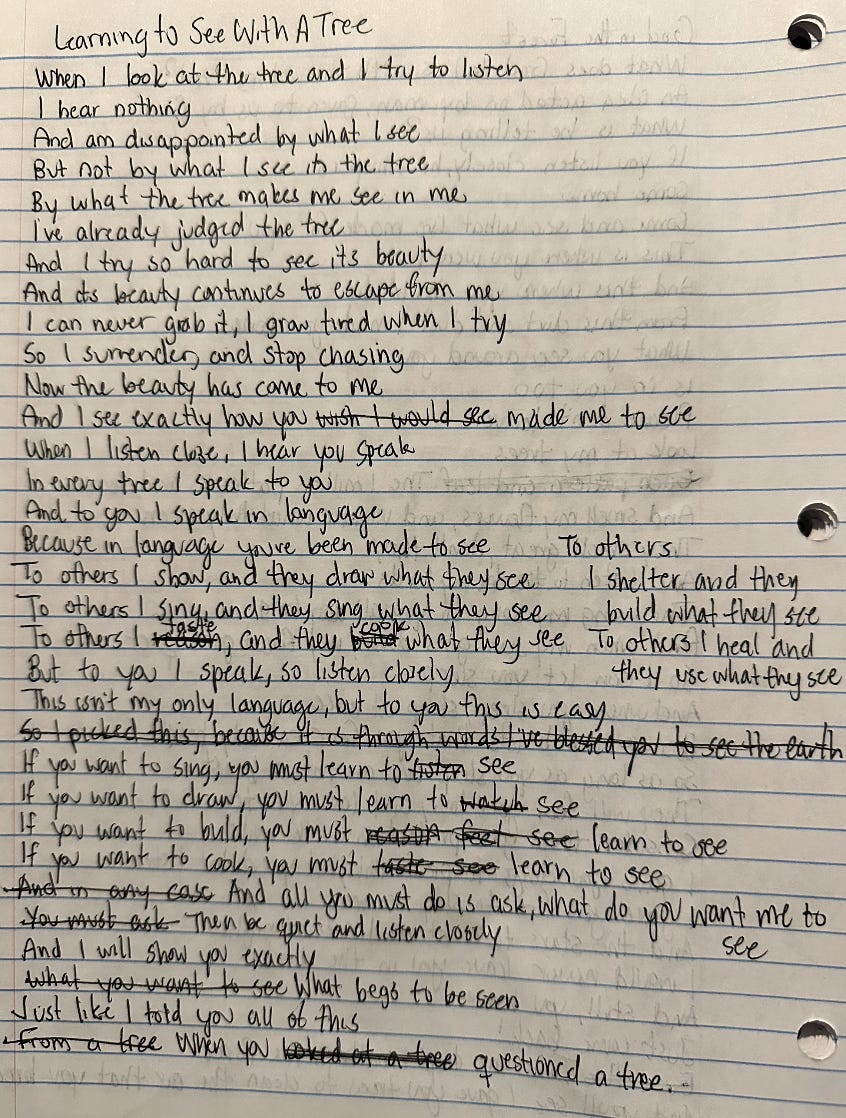 Learning to See With A Tree
When I look at the tree and I try to listen
I hear nothing
And am disappointed by what I see
But not by what I see in the tree
By what the tree makes me see in me
I've already judged the tree
And I try so hard to see its beauty
And its beauty continues to escape from me
I can never grab it, I grow tired when I try
So I surrender, and stop chasing
Now the beauty has come to me
And I see exactly how you wish I would see made me to see
When I listen close, I hear you speak
In every tree I speak to you
And to you I speak in language
Because in language you've been made to see
To others I show, and they draw what they see
To others I sing, and they sing what they see
To others I reason taste, and they build cook what they see
To others
I shelter and they
build what they see
To others I heal and
they use what they see
But to you I speak, so listen closely
This isn't my only language, but to you this is easy
So I picked this, because it is through words I've blessed you to see the earth
If you want to sing, you must learn to listen see
If you want to draw, you must learn to watch see
If you want to build, you must reason feel see learn to see
If you want to cook, you must taste see learn to see
And in any case And all you must do is ask, what do you want me to
see
You must ask Then be quiet and listen closely
And I will show you exactly
what you want to see What begs to be seen
Just like I told you all of this
From a tree When you looked at a tree questioned a tree.